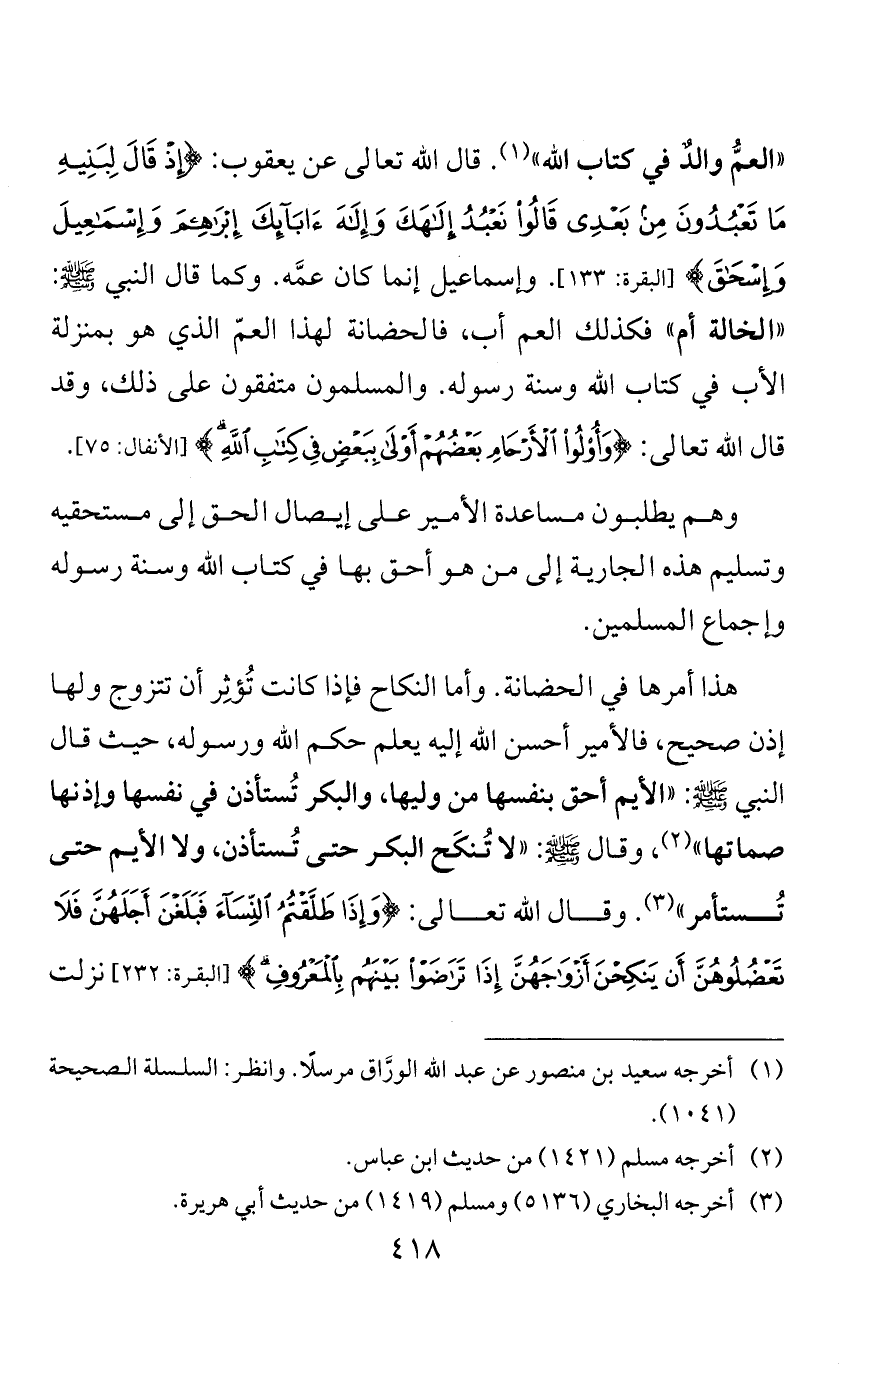 «العمُّ والدٌ في كتاب الله»(١). قال الله تعالى عن يعقوب: ﴿إِذْ قَالَ لِبَنِيهِ
مَا تَعْبُدُونَ مِنۢ بَعْدِى قَالُوا۟ نَعْبُدُ إِلَٰهَكَ وَإِلَٰهَ ءَابَآئِكَ إِبْرَٰهِـۧمَ وَإِسْمَٰعِيلَ
وَإِسْحَٰقَ﴾ [البقرة: ١٣٣]. وإسماعيل إنما كان عمَّه. وكما قال النبي ﷺ:
«الخالة أم» فكذلك العم أب، فالحضانة لهذا العمّ الذي هو بمنزلة
الأب في كتاب الله وسنة رسوله. والمسلمون متفقون على ذلك، وقد
قال الله تعالى: ﴿وَأُو۟لُوا۟ ٱلْأَرْحَامِ بَعْضُهُمْ أَوْلَىٰ بِبَعْضٍ فِى كِتَٰبِ ٱللَّهِ ۗ﴾ [الأنفال: ٧٥].
وهم يطلبون مساعدة الأمير على إيصال الحق إلى مستحقيه
وتسليم هذه الجارية إلى من هو أحق بها في كتاب الله وسنة رسوله
وإجماع المسلمين.
هذا أمرها في الحضانة. وأما النكاح فإذا كانت تُؤثِر أن تتزوج ولها
إذن صحيح، فالأمير أحسن الله إليه يعلم حكم الله ورسوله، حيث قال
النبي ﷺ: «الأيم أحق بنفسها من وليها، والبكر تُستأذن في نفسها وإذنها
صماتها»(٢)، وقال ﷺ: «لا تُنكَح البكر حتى تُستأذن، ولا الأيم حتى
تُستأمر»(٣). وقال الله تعالى: ﴿وَإِذَا طَلَّقْتُمُ ٱلنِّسَآءَ فَبَلَغْنَ أَجَلَهُنَّ فَلَا
تَعْضُلُوهُنَّ أَن يَنكِحْنَ أَزْوَٰجَهُنَّ إِذَا تَرَٰضَوْا۟ بَيْنَهُم بِٱلْمَعْرُوفِ ۗ﴾ [البقرة: ٢٣٢] نزلت
(١) أخرجه سعيد بن منصور عن عبد الله الورَّاق مرسلًا. وانظر: السلسلة الصحيحة
(١٠٤١).
(٢) أخرجه مسلم (١٤٢١) من حديث ابن عباس.
(٣) أخرجه البخاري (٥١٣٦) ومسلم (١٤١٩) من حديث أبي هريرة.
٤١٨